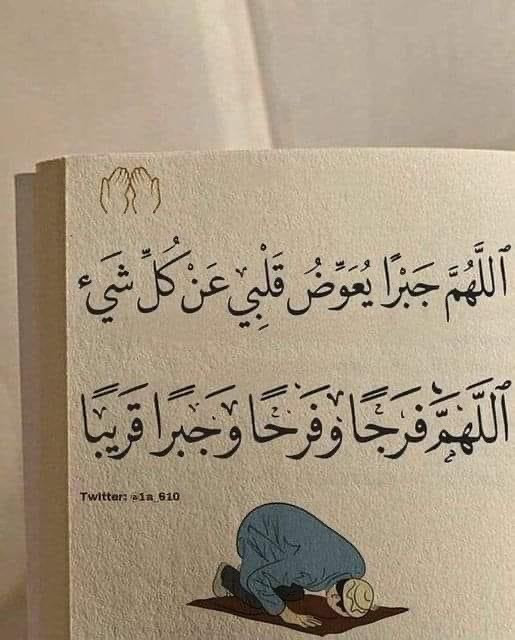 ٱللَّهُمَّ جَبْرًا يُعَوِّضُ قَلْبِي عَنْ كُلِّ شَيْء
ٱللَّهُمَّ فَرَجًا وَفَرَحًا وَجَبْرًا قَرِيبًا
Twitter: @1a_610